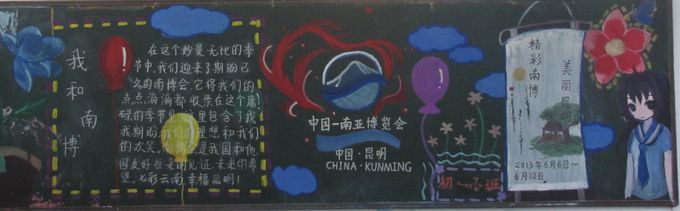 我和南博
在这个妙曼无比的季
节中,我们迎来了期盼已
久的南博会。它将我们的
点点滴滴都收集在这个庸
碌的季节里,里包含了我
我期盼,我们的理想和我们
的欢笑。南博是我国和他
国友好往来的见证,未来的希
望。七彩云南幸福昆明!
中国-南亚博览会
中国·昆明
CHINA·KUNMING
精彩南博
美丽昆明
2013年6月6日~
6月10日